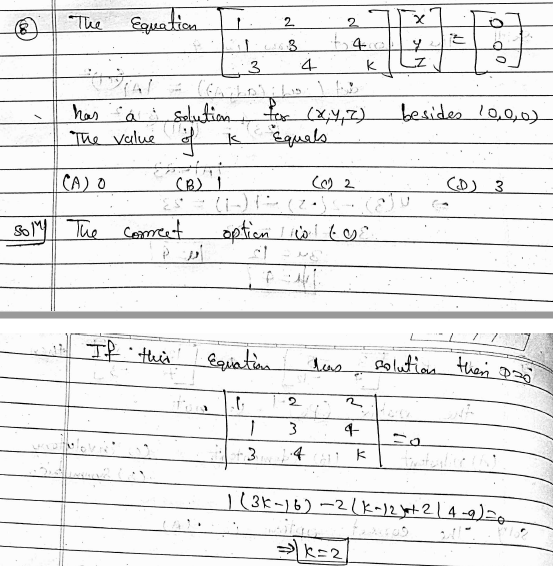 ⑧ The Equation [1 2 2 / 1 3 4 / 3 4 K] [x / y / z] = [0 / 0 / 0]
has a solution for (x,y,z) besides (0,0,0)
The value of K Equals
(A) 0 (B) 1 (C) 2 (D) 3
Solⁿ The correct option is (c)
If this Equation has solution then D=0
|1 2 2 / 1 3 4 / 3 4 K| = 0
1(3K-16) -2(K-12)+2(4-9)=0
⇒ K=2